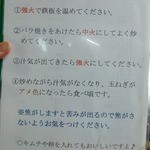 ①強火で鉄板を温めてください。
②バラ焼きをあけたら中火にしてよく炒
めてください。
③汁気が出てきたら強火にしてくださ
い。
④炒めながら汁気がなくなり、玉ねぎが
アメ色になったら食べ頃です。
※焦がしますと苦みが出るので焦がさ
ないようお気をつけください。
○キムチや卵を入れてもおいしいですよ♪